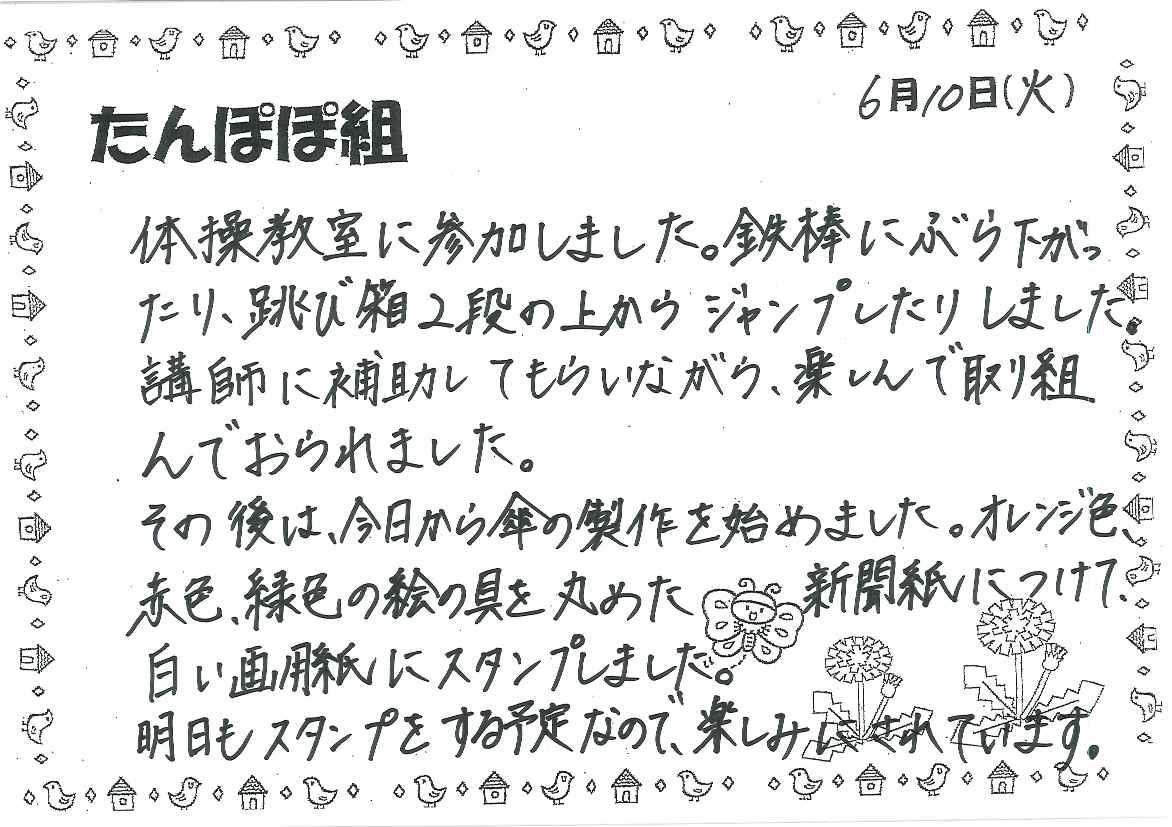 6月10日(火)
たんぽぽ組
体操教室に参加しました。鉄棒にぶら下がっ
たり、跳び箱2段の上からジャンプしたりしました。
講師に補助してもらいながら、楽しんで取り組
んでおられました。
その後は、今日から傘の製作を始めました。オレンジ色、
赤色、緑色の絵の具を丸めた新聞紙につけて、
白い画用紙にスタンプしました。
明日もスタンプをする予定なので、楽しみにされています。